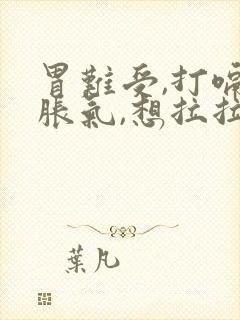 胃難受,打嗝
脹氣,想拉拉
葉凡